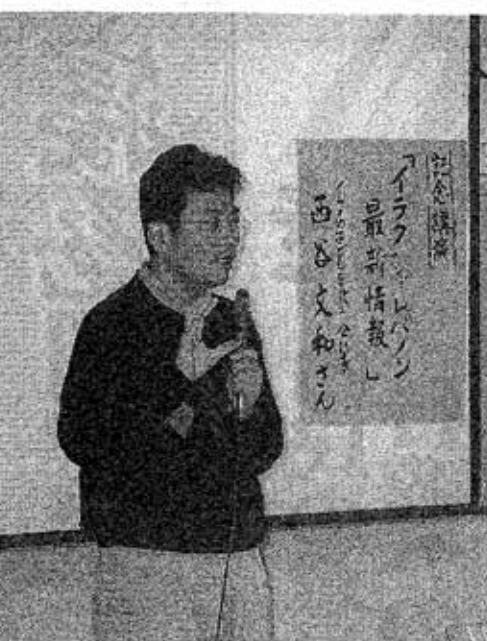 記念講演
「イラク・レバノン
最新情報」
西谷文和さん